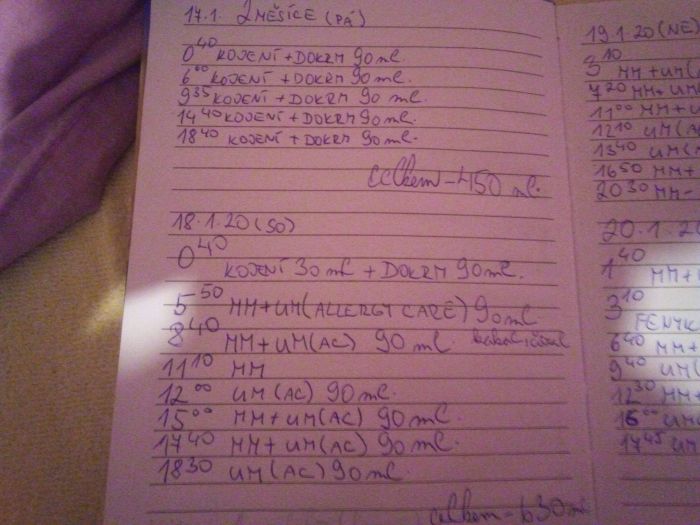 17.1. 2 MĚSÍCE (PÁ)
0⁴⁰ KOJENÍ + DOKRM 90 ml.
6⁰⁰ KOJENÍ + DOKRM 90 ml.
9³⁵ KOJENÍ + DOKRM 90 ml.
14⁴⁰ KOJENÍ + DOKRM 90 ml.
18⁴⁰ KOJENÍ + DOKRM 90 ml.
celkem - 450 ml.
18.1.20 (SO)
0⁴⁰
KOJENÍ 30 ml + DOKRM 90 ml.
5⁵⁰ MM + UM (ALLERGY CARE) 90 ml
8⁴⁰ MM + UM (AC) 90 ml.
11¹⁰ MM
12⁰⁰ UM (AC) 90 ml.
15⁰⁰ MM + UM (AC) 90 ml.
17⁴⁰ MM + UM (AC) 90 ml.
18³⁰ UM (AC) 90 ml.
celkem - 630 ml
19.1.20 (NE)
3¹⁰ MM + UM (
7²⁰ MM + UM
11⁰⁰ MM + U
12¹⁰ UM (A
13⁴⁰ UM (A
16⁵⁰ MM +
20³⁰ MM
20.1.20
1⁴⁰ MM +
3¹⁰
6⁴⁰ MM +
9⁴⁰ UM (
12³⁰ MM
16⁰⁰ UM
17⁴⁵ UM